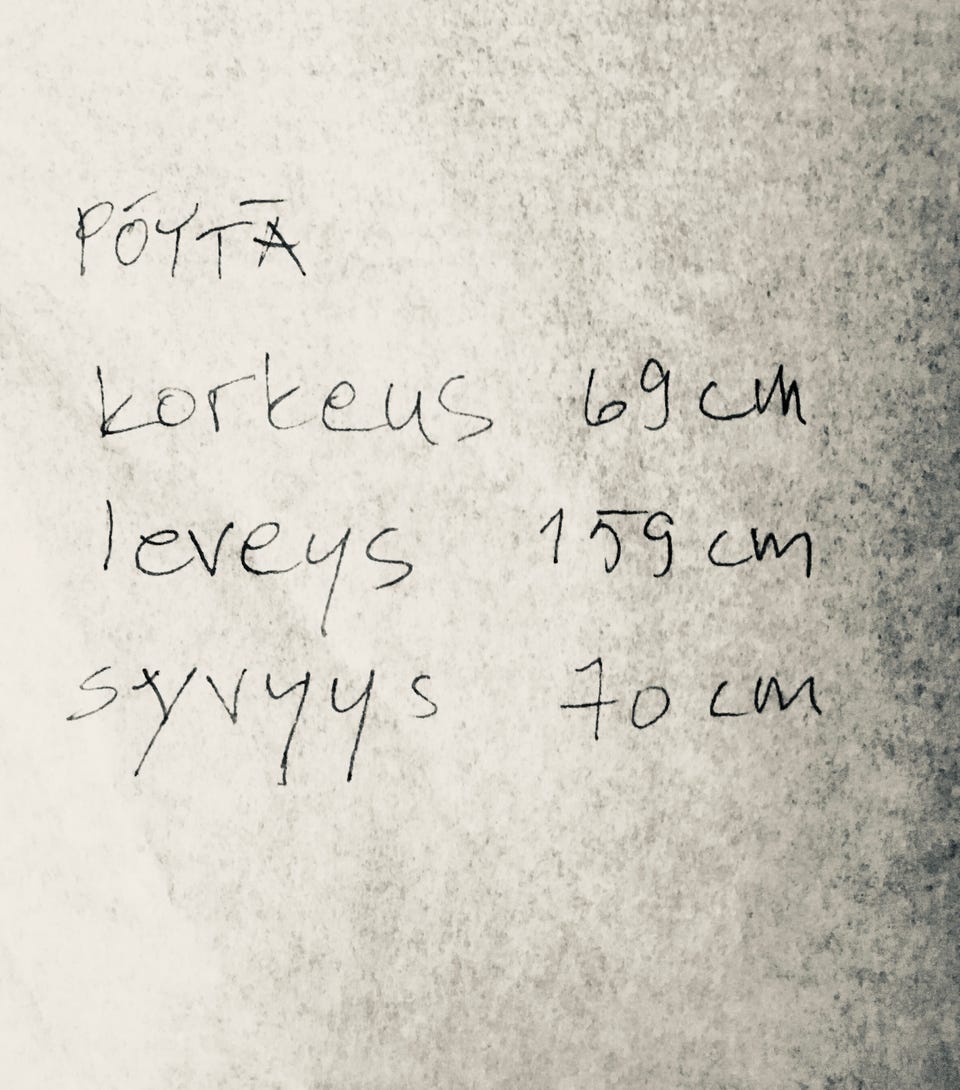 PÖYTÄ
korkeus 69 cm
leveys 159 cm
syvyys 70 cm